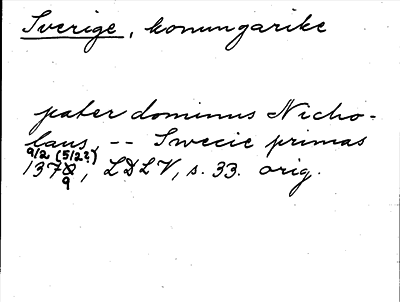 Sverige, konungarike
pater dominus Nicho-
laus, -- Swecie primas
9/2 (5/2?)
1378, LDLV, s. 33. orig.
9